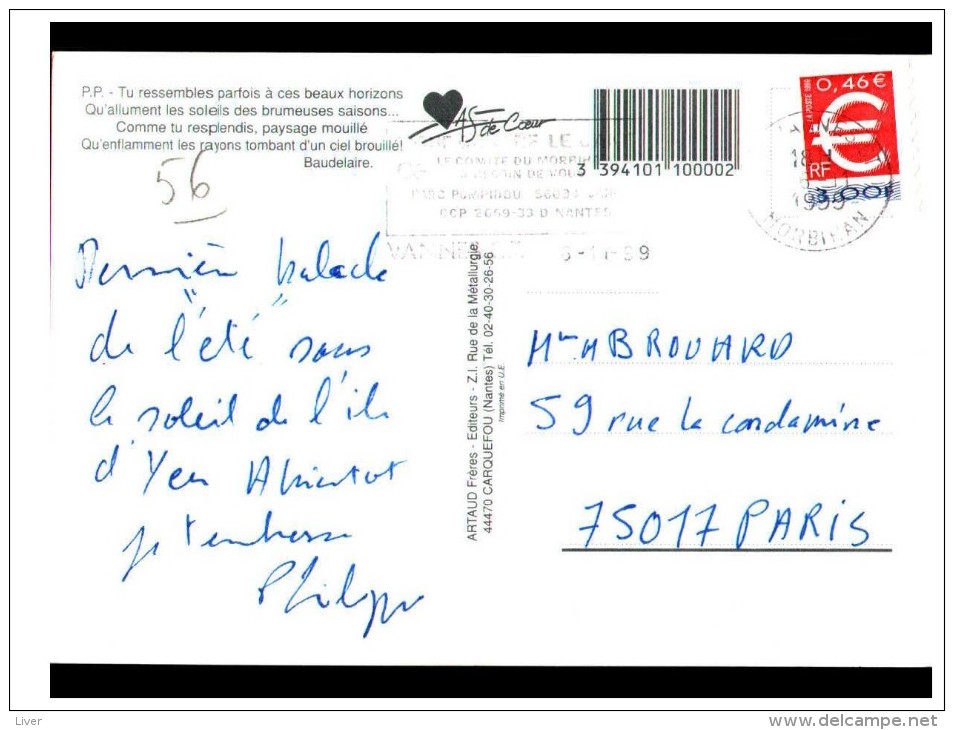 P.P. - Tu ressembles parfois à ces beaux horizons
Qu'allument les soleils des brumeuses saisons...
Comme tu resplendis, paysage mouillé
Qu'enflamment les rayons tombant d'un ciel brouillé!
Baudelaire.
56
AS de Cœur
3 394101 100002
LE COMITE DU MORBIH
BESOIN DE VOUS
PARC POMPIDOU 56034
CCP 2669-33 D NANTES
VANNES
6-11-99
0,46 €
LA POSTE 1999
RF
3,00F
18 H
1999
MORBIHAN
Dernière balade
de "l'été" sous
le soleil de l'ile
d'Yeu Abientot
je t'embrasse
Philippe
ARTAUD Frères - Editeurs - Z.I. Rue de la Métallurgie,
44470 CARQUEFOU (Nantes) Tél. 02-40-30-26-56
Imprimé en U.E.
BROUARD
59 rue la condamine
75017 PARIS
Liver
www.delcampe.net